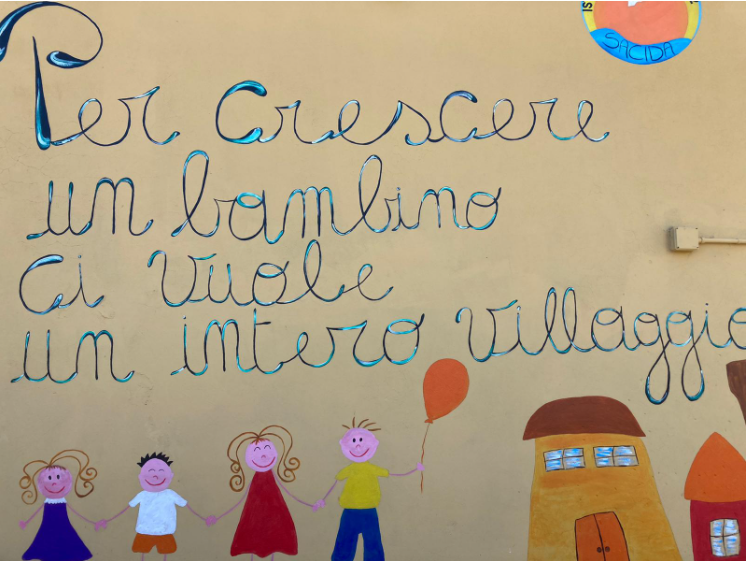 SACIDA
Per crescere
un bambino
ci vuole
un intero villaggio